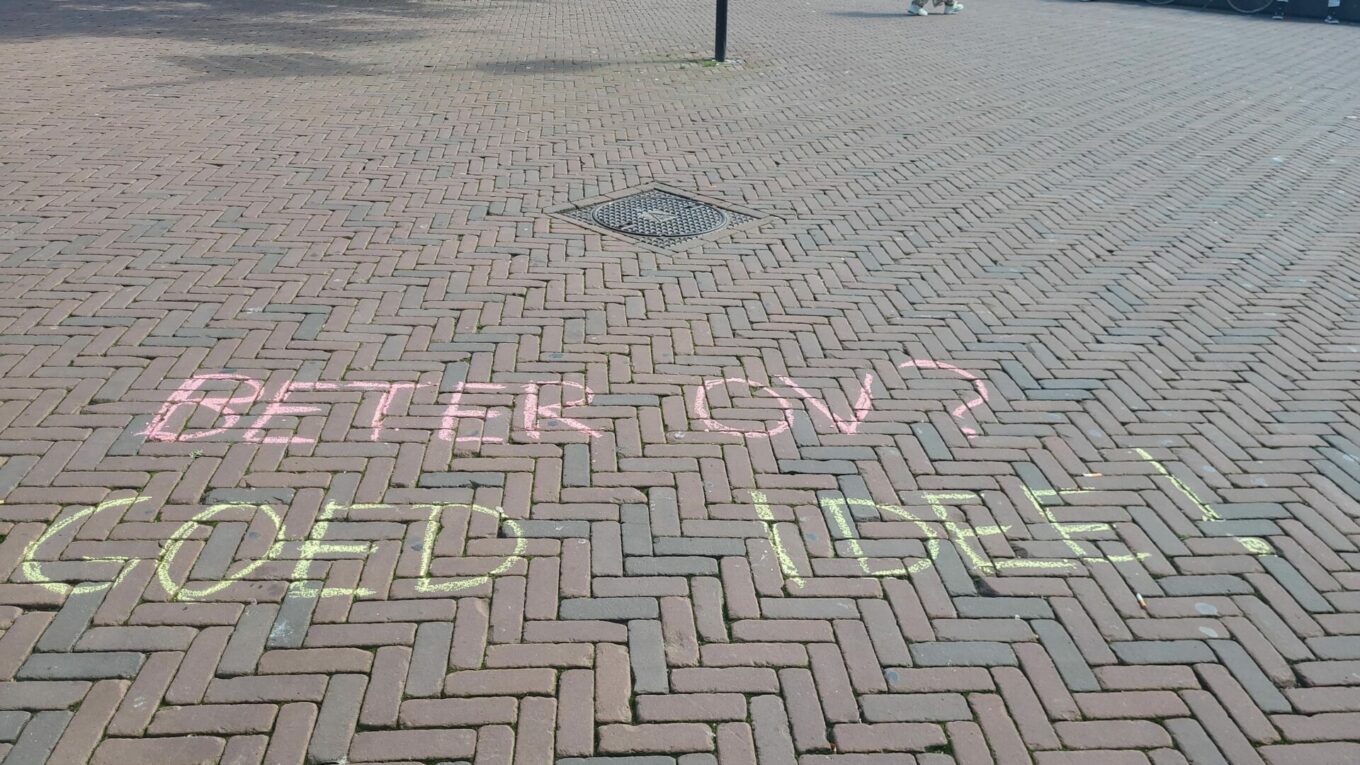 BETER OV?
GOED IDEE!